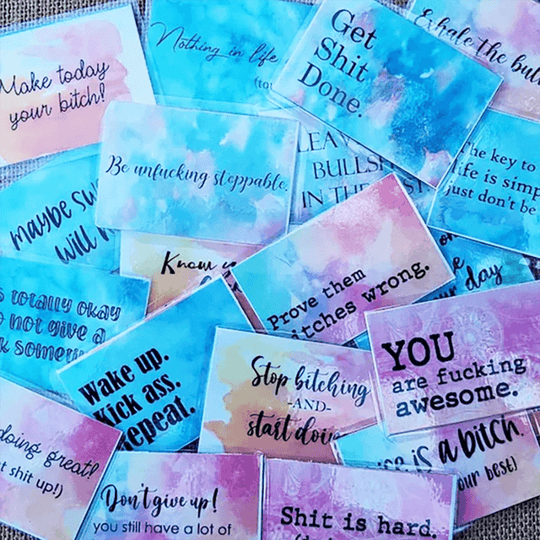 Make today
your bitch!
Nothing in life
Get
Shit
Done.
Exhale the
Be unfucking stoppable.
IN THE
The key to
life is
just don't be
maybe
will
Know
Prove them
bitches wrong.
day
totally okay
not give a
Wake up.
Kick ass.
Repeat.
Stop bitching
-AND-
start
YOU
are fucking
awesome.
is a bitch.
your best)
doing great!
shit up!)
Don't give up!
you still have a lot of
Shit is hard.